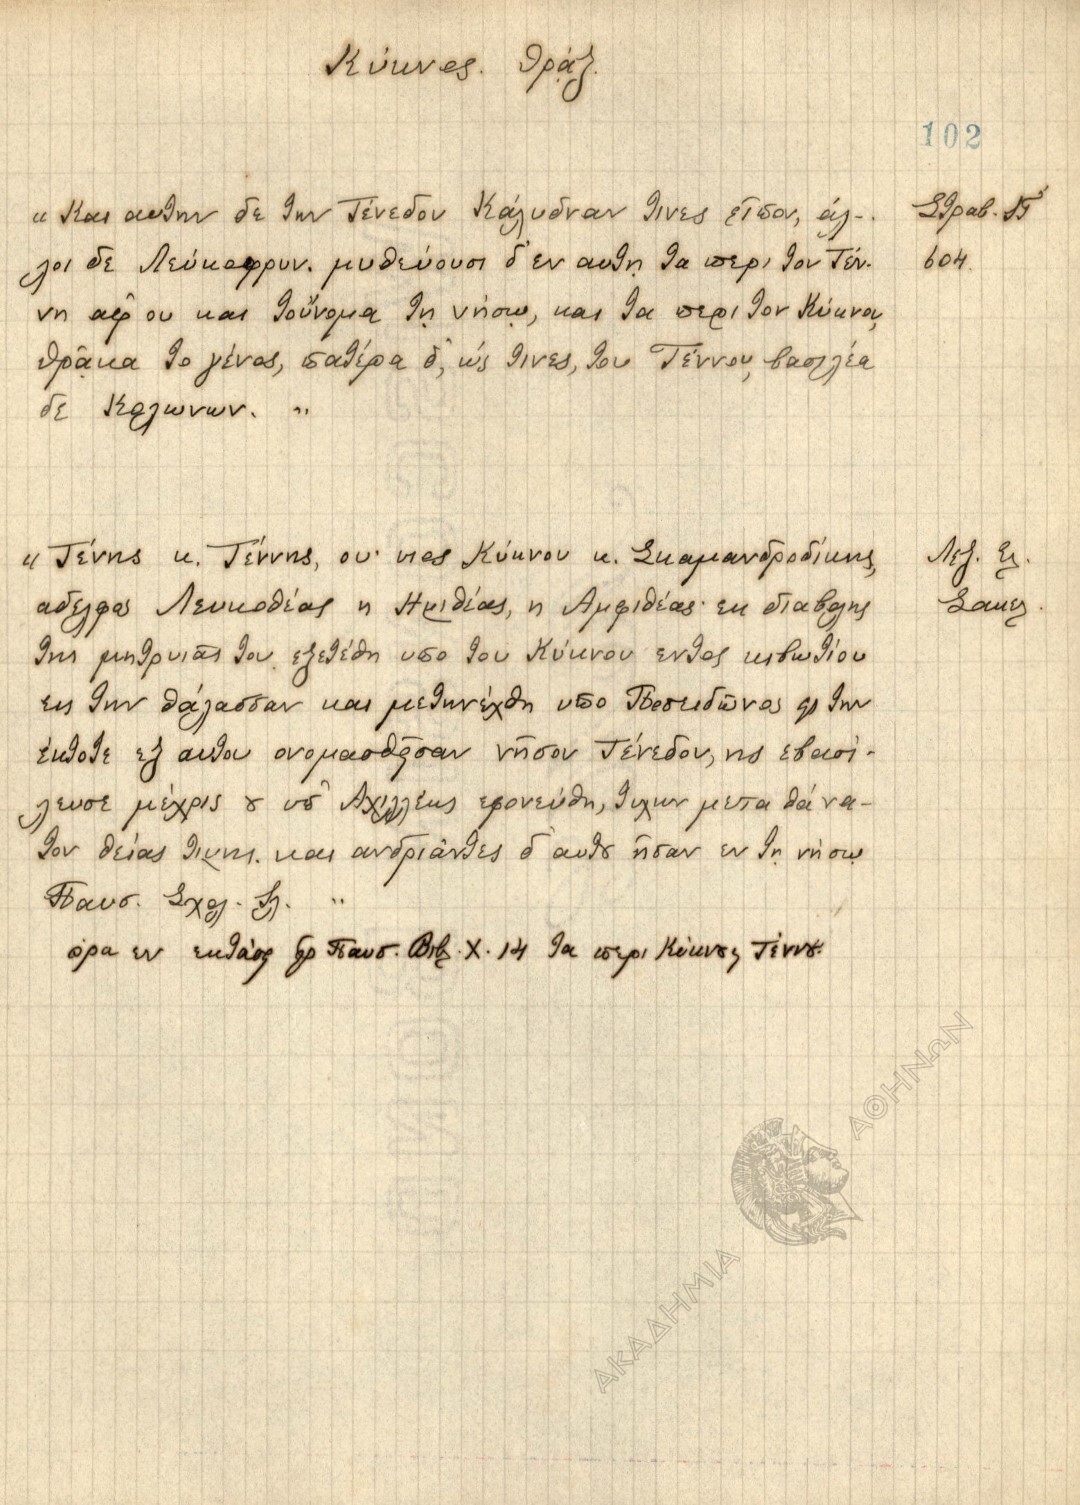 Κύκνος. Θρᾷξ.
102
« Και αυτην δε την Τένεδον Κάλυδναν τινες εἶπον, άλ-
λοι δε Λεύκοφρυν. μυθεύουσι δ' εν αυτῃ τα περι τον Τέν-
νη αφ' ου και τοὔνομα τῃ νήσῳ, και τα περι τον Κύκνον,
Θρᾷκα το γένος, πατέρα δ', ὡς τινες, του Τέννου, βασιλέα
δε Κολωνων. "
Στραβ. ΙΓ'
604.
« Τένης κ. Τέννης, ου· υιος Κύκνου κ. Σκαμανδροδίκης,
αδελφος Λευκοθέας η Ημιθέας, η Αμφιθέας· εκ διαβολης
της μητρυιᾶς του εξετέθη υπο του Κύκνου εντος κιβωτίου
εις την θάλασσαν και μετηνέχθη υπο Ποσειδῶνος εις την
έκτοτε εξ αυτου ονομασθεῖσαν νῆσον Τένεδον, ης εβασί-
λευσε μέχρις ου υπ' Αχιλλέως εφονεύθη, τυχων μετα θάνα-
τον θείας τιμης. και ανδριάντες δ' αυτου ἦσαν εν τῃ νήσῳ
Παυσ. Σχολ. Ιλ. "
Λεξ. Ελ.
Σακελ.
όρα εν εκτάσει παρα Παυσ. Βιβλ. Χ. 14 τα περι Κύκνου και Τέννου.
ΑΚΑΔΗΜΙΑ ΑΘΗΝΩΝ